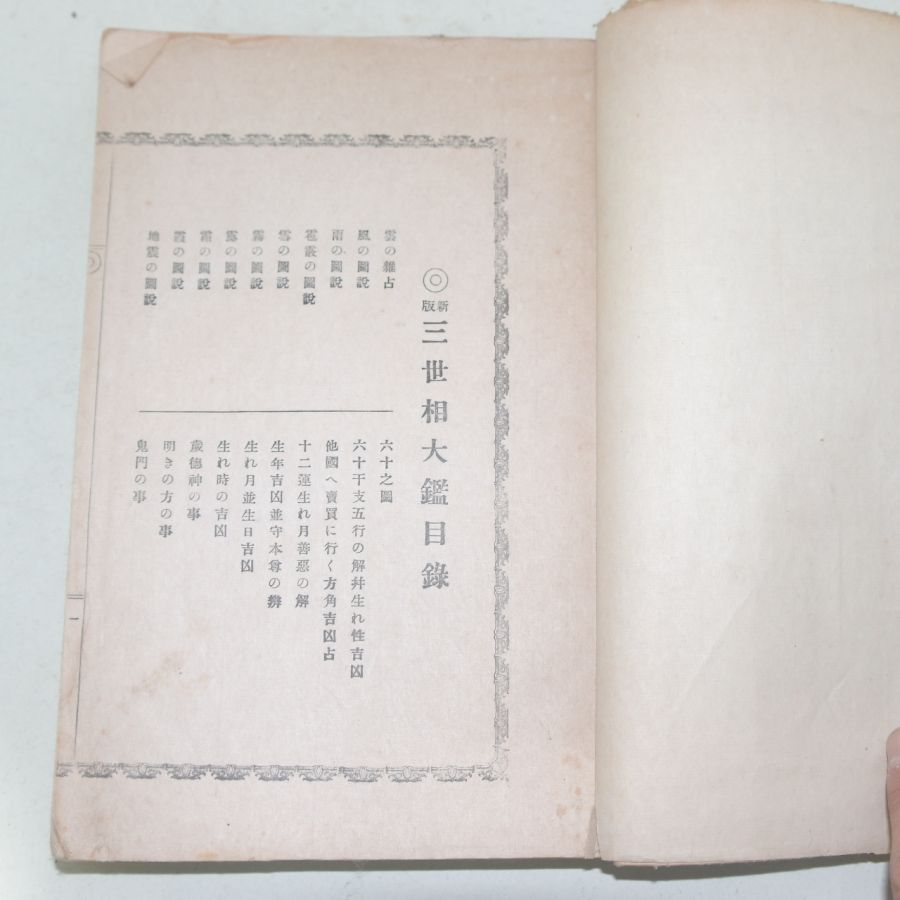 ◎新版 三世相大鑑目錄
雲の雑占
風の圖說
雨の圖說
雹霰の圖說
雪の圖說
霧の圖說
露の圖說
霜の圖說
霞の圖說
地震の圖說
六十之圖
六十干支五行の解幷生れ性吉凶
他國へ賣買に行く方角吉凶占
十二運生れ月善惡の解
生年吉凶並守本尊の辨
生れ月並生日吉凶
生れ時の吉凶
歲德神の事
明きの方の事
鬼門の事
一